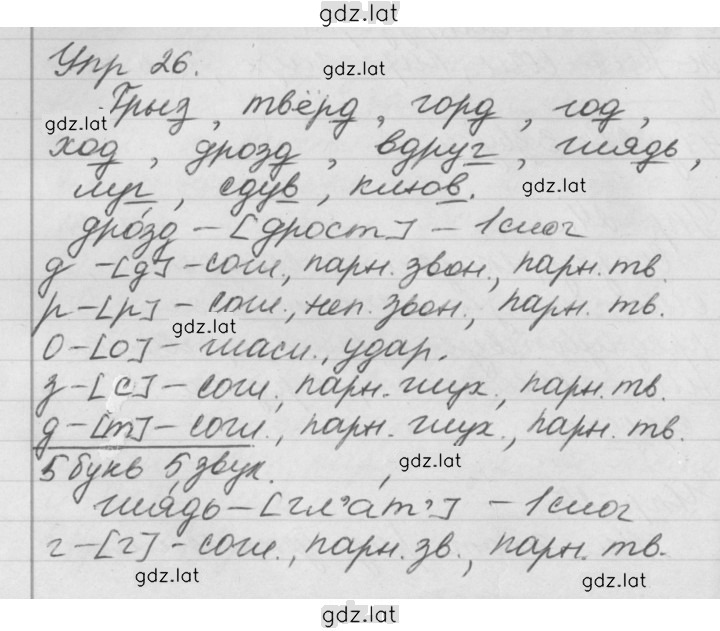 gdz.lat
Упр 26.
gdz.lat
Грыз, твёрд, горд, год,
gdz.lat
ход, дрозд, вдруг, глядь,
луг, сдув, клюв.
gdz.lat
дро́зд – [дрост] – 1 слог
д – [д] – согл., парн. звон., парн. тв.
р – [р] – согл., неп. звон., парн. тв.
gdz.lat
о – [о] – гласн., удар.
з – [с] – согл., парн. глух., парн. тв.
д – [т] – согл., парн. глух., парн. тв.
5 букв 5 звук.
gdz.lat
гля́дь – [гл'ат'] – 1 слог
г – [г] – согл., парн. зв., парн. тв.
gdz.lat
gdz.lat
gdz.lat